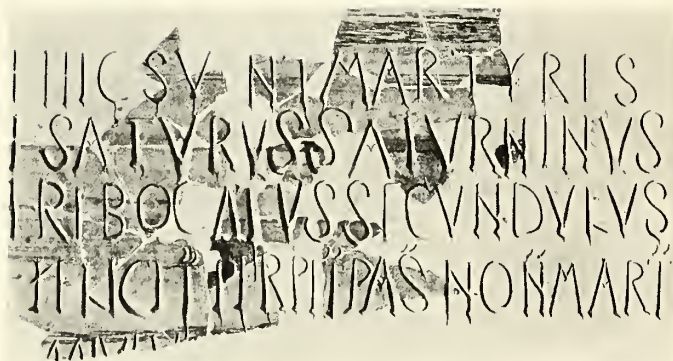 † HIC SVNT MARTYRES
† SATVRVS SATVRNINVS
† REBOCATVS SECVNDVLVS
† FELICIT PERPET PAS NON MART